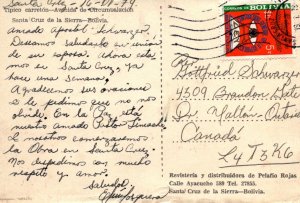 Santa Cruz - 16-VI-79
Típico carretón—Avenida de Circunvalación
Santa Cruz de la Sierra—Bolivia.
Amado Apostol- Schwarzer
Deseamos saludarlo en unión
de su esposa. Ahora es-
tamos en Santa Cruz, ya
hace una semana.
Agradecemos sus oraciones
i le pedimos que no nos
olvide. En La Paz está
nuestro amado
i nosotros comenzando
la Obra en Santa Cruz.
Nos despedimos con mucho
respeto y amor.
Saludos
CORREOS DE BOLIVIA
Gottfried Schwarzer
4509 Brandon Gate
Dr Malton-Ontario
Canadá
L4T3K6
Revistería y distribuidora de Pelafio Rojas
Calle Ayacucho 589 Tel. 27855.
Santa Cruz de la Sierra - Bolivia.